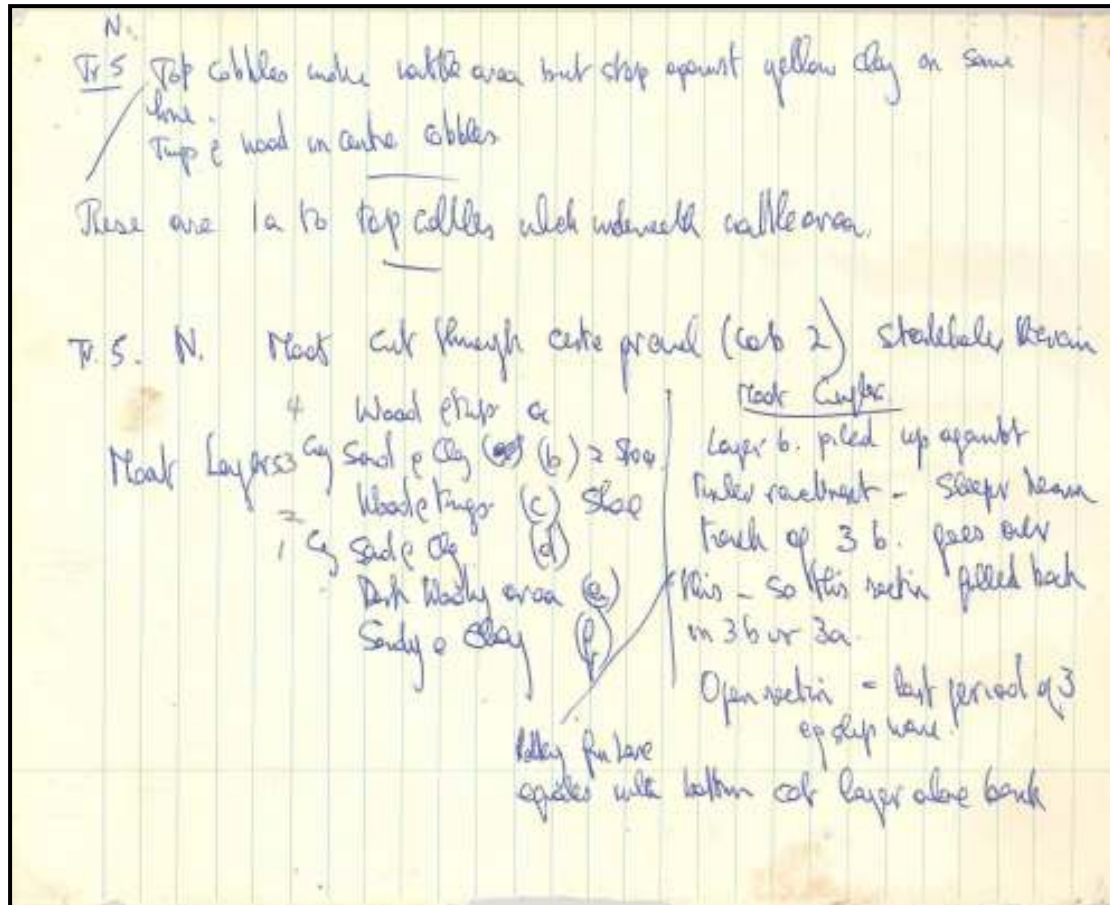 N.
Tr 5 Top cobbles under wattle area but stop against yellow clay on same
line.
Twigs & wood in centre cobbles
These are 1a to top cobbles which underneath wattle area.
Tr. 5. N. Moat cut through centre ground (cob 2)
4 Wood & twigs a
Moat Layers 3 Sand & Clay (b) 2 Shoe
Wood & Twigs (c) Shoe
2
1 Sand & Clay (d)
Dark Woody area (e)
Sandy & Clay (f)
Moat
Layer b. piled up against
timber revetment - sleeper beam
trench of 3 b. goes over
this - so this section filled back
in 3b or 3a.
Open section = last period of 3
eg ship
Pottery from here
equates with bottom cob layer above bank